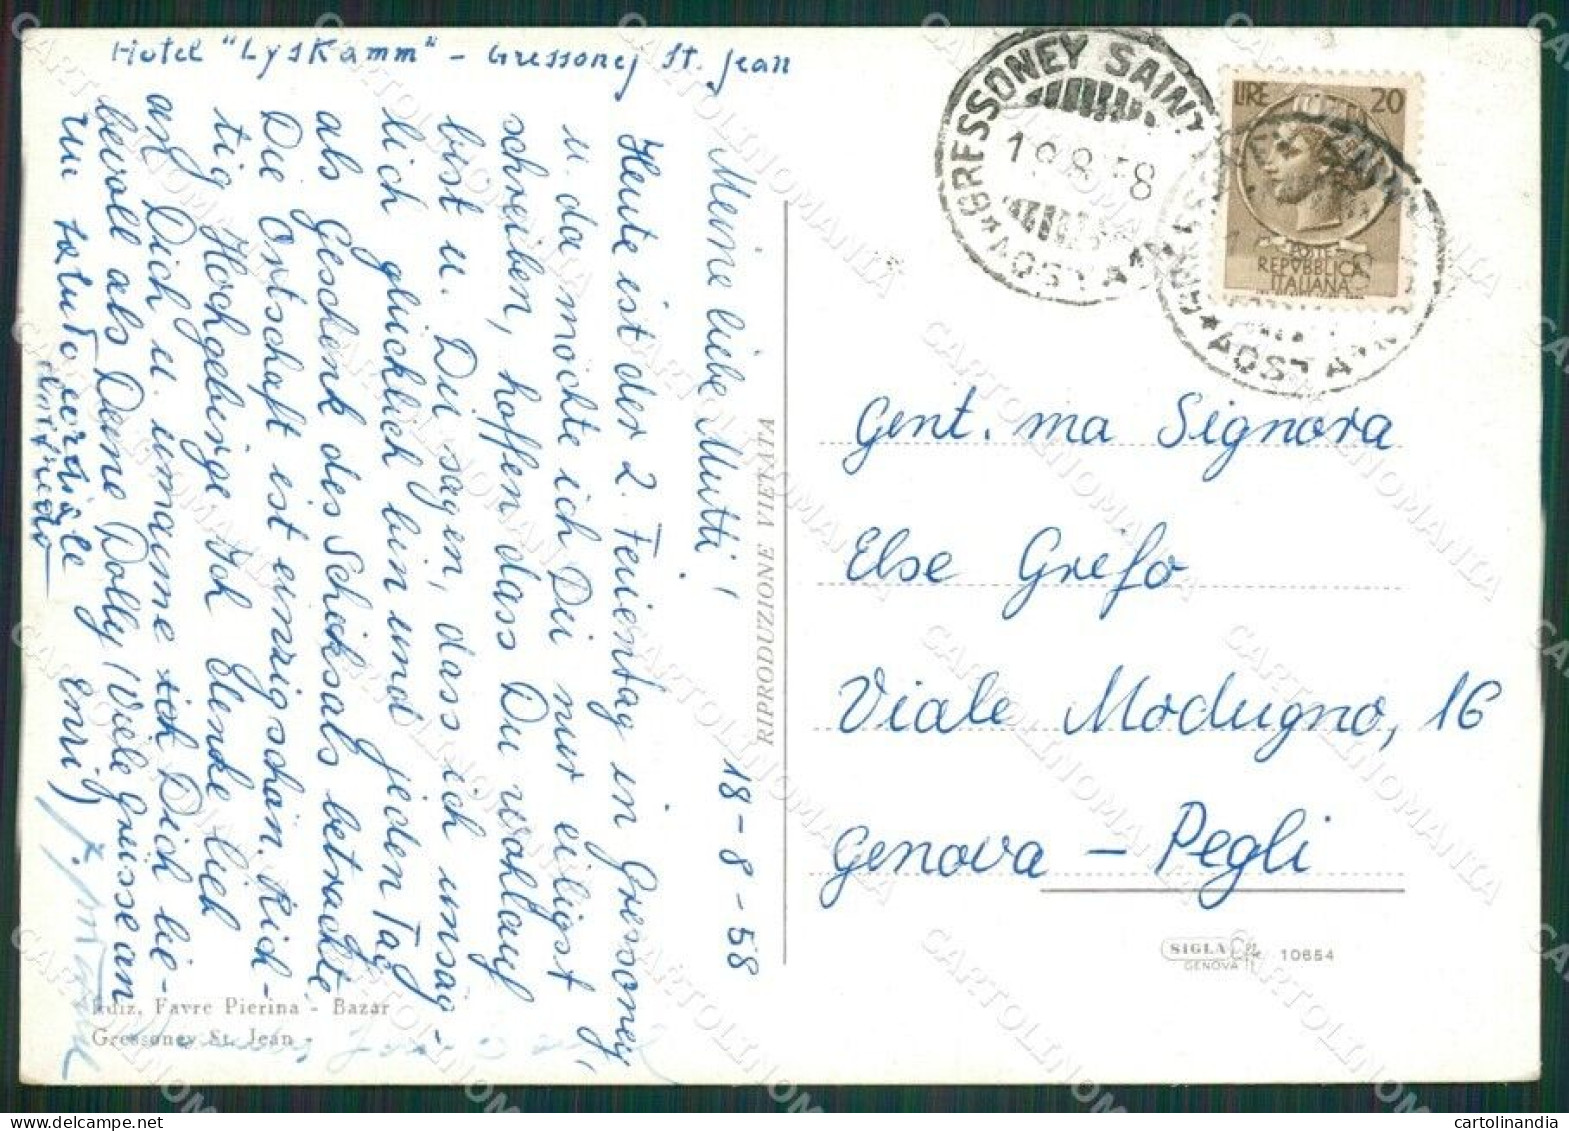 Hotel "Lyskamm" - Gressoney St. Jean
18-8-58
Meine liebe Mutti!
Heute ist der 2. Ferientag in Gressoney,
u. da möchte ich Dir nur eiligst
schreiben, hoffen dass Du wohlauf
bist u. Dir sagen, dass ich unsag-
lich glücklich bin und jeden Tag
als Geschenk des Schicksals betrachte.
Die Ortschaft ist einzig schön. Rich-
tig Hochgebirge. Ich
an Dich u. umarme ich Dich lie-
bevoll als Deine Dolly (Viele Grüsse an
un saluto cordiale
Enri)
Manfredo
GRESSONEY SAINT
18.8.58
AOSTA
LIRE 20
POSTE
REPVBBLICA
ITALIANA
GRESSONEY SAINT
AOSTA
Gent.ma Signora
Else Grefo
Viale Modugno, 16
Genova - Pegli
RIPRODUZIONE VIETATA
SIGLA
GENOVA
10654
Ediz. Favre Pierina - Bazar
Gressoney St. Jean -
CARTOLINOMANIA
cartolinandia